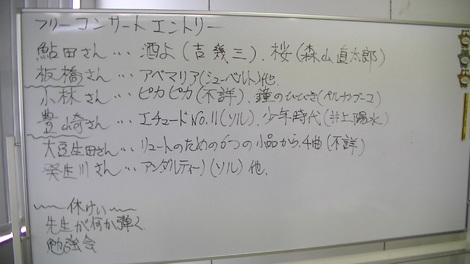 フリーコンサートエントリー
鮎田さん…酒よ(吉幾三)、桜(森山直太郎)
板橋さん…アベマリア(シューベルト)他
小林さん…ピカピカ(不詳)、鐘のひびき(ペルナンブーコ)
豊崎さん…エチュードNo.11(ソル)、少年時代(井上陽水)
大豆生田さん…リュートのための6つの小品から4曲(不詳)
発生川さん…アンダンティーノ(ソル)他、
〜〜休けい〜〜
先生が何か弾く
勉強会